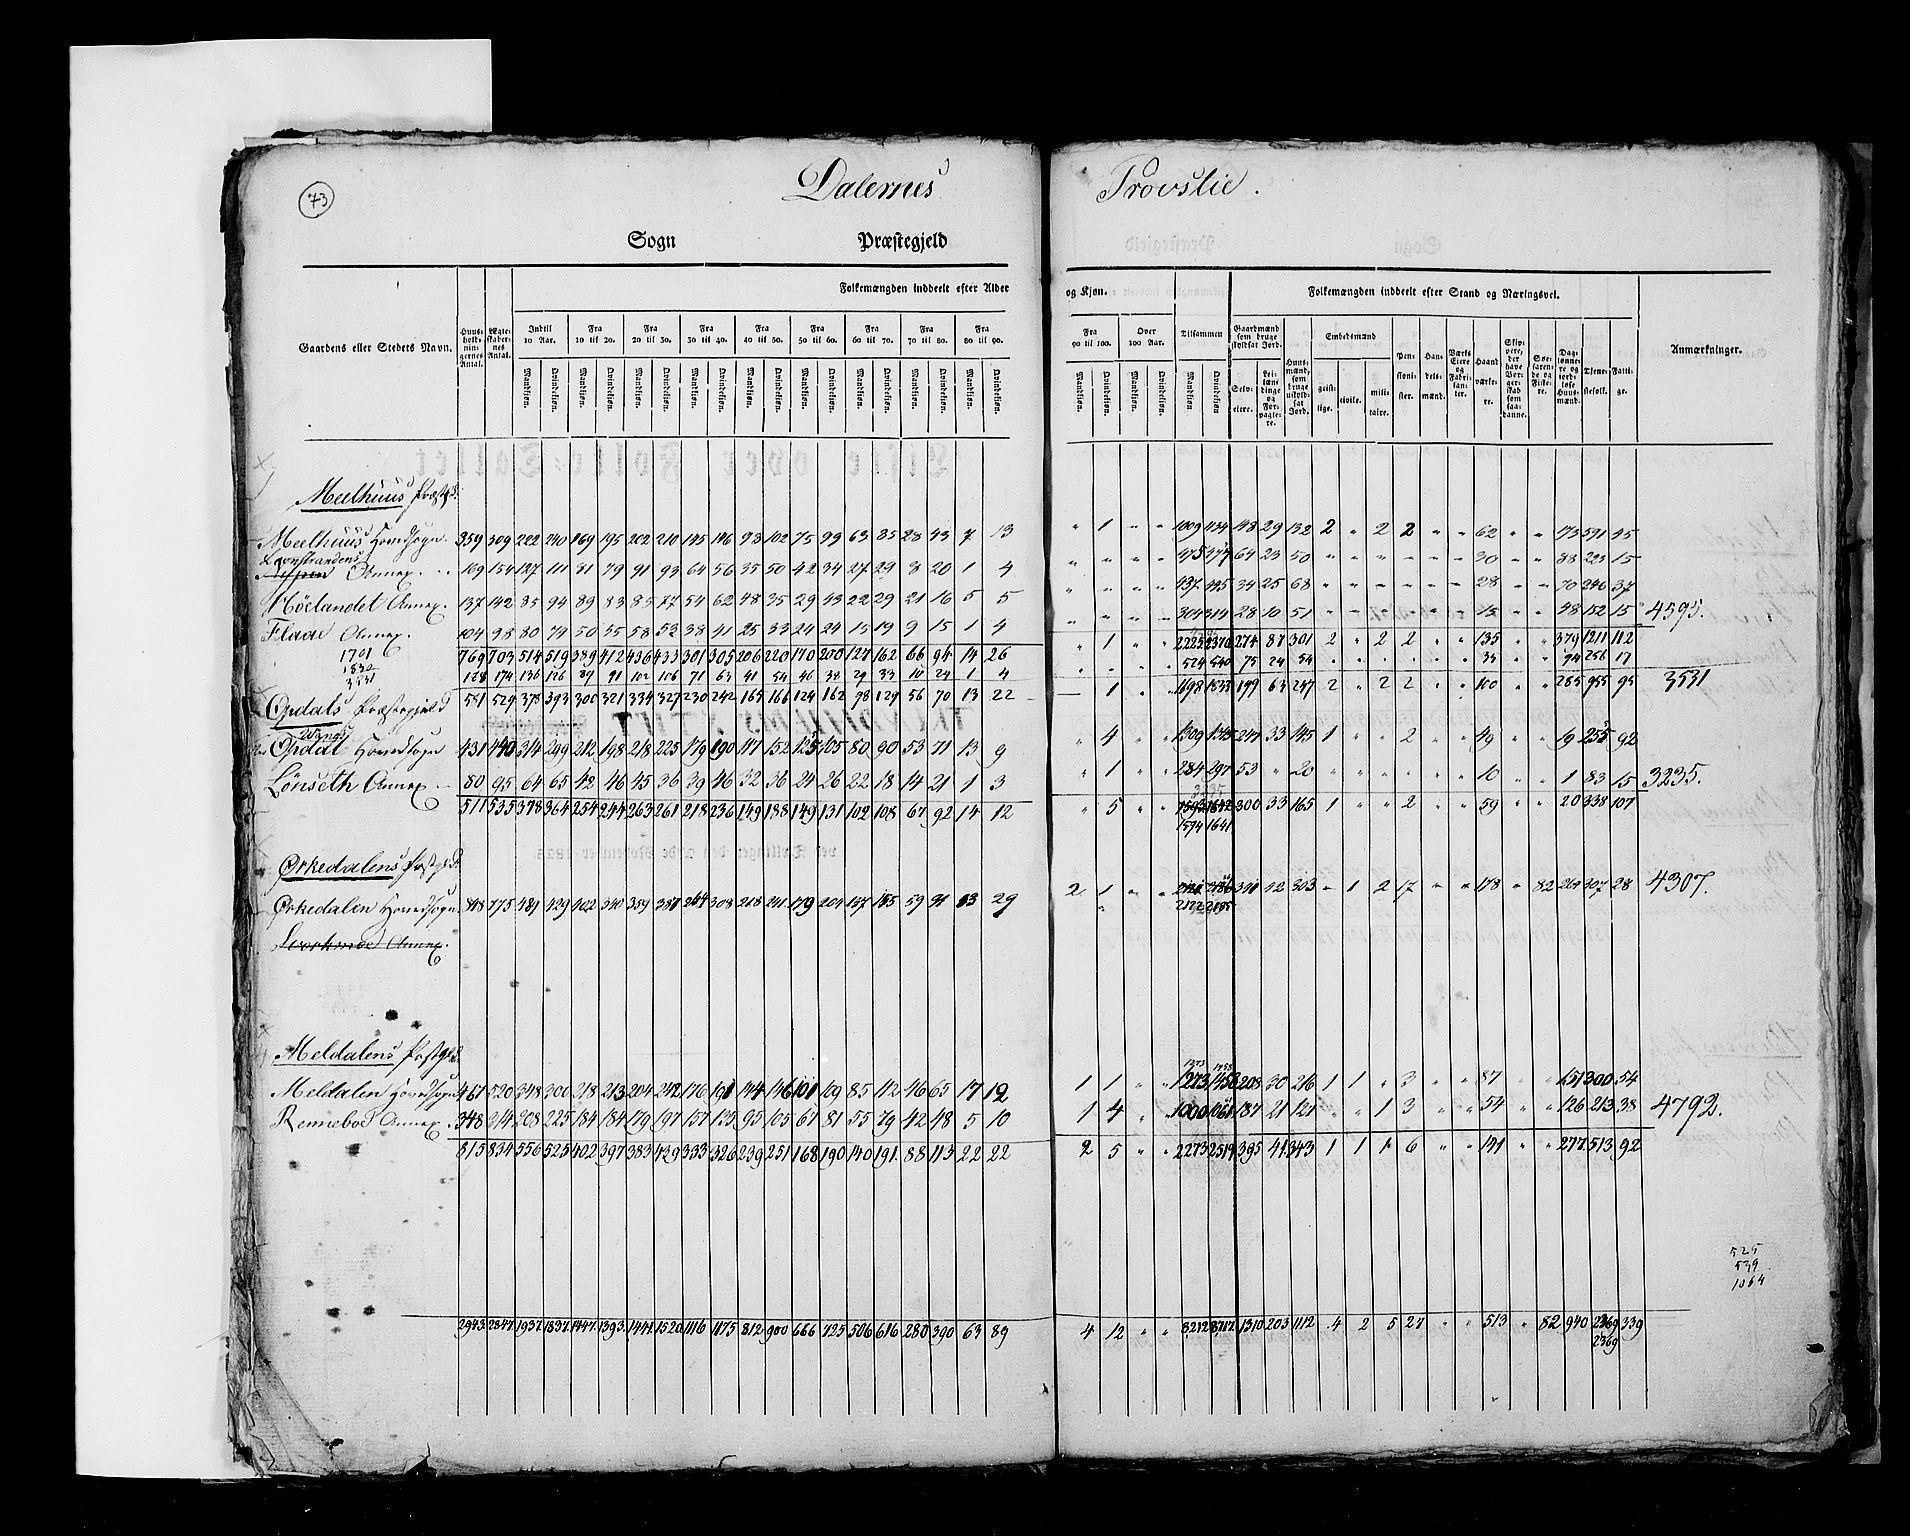 73
Dalernes Provstie.
Sogn Præstegjeld
Folkemængden inddeelt efter Alder og Kjøn.
Folkemængden inddeelt efter Stand og Næringsvei.
Gaardens eller Stedets Navn.
Huusholdningernes Antal.
Ægteskabernes Antal.
Indtil 10 Aar.
Fra 10 til 20.
Fra 20 til 30.
Fra 30 til 40.
Fra 40 til 50.
Fra 50 til 60.
Fra 60 til 70.
Fra 70 til 80.
Fra 80 til 90.
Fra 90 til 100.
Over 100 Aar.
Tilsammen
Mandkiøn. Qvindekiøn.
Gaardmænd som bruge skyldsat Jord.
Selveiere.
Leilændinge og Forpagtere.
Huusmænd, som bruge uskyldsat Jord.
Embedsmænd
geistlige. civile. militaire.
Pensionister.
Handelsmænd.
Værks Eiere og Fabrikanter.
Haandværkere.
Skippere, der have Borgerskab som saadanne.
Søefarende og Fiskere.
Daglønnere og jordløse Huusmænd.
Tienestefolk.
Fattige.
Anmærkninger.
Meelhuus Præstgd.
Meelhuus Hovedsogn. 359 309 222 240 169 195 202 210 145 146 93 102 75 99 63 85 28 43 7 13 " 1 " " 1009 1134 148 29 132 2 " 2 2 " " 62 " " 173 591 45
Leinstrandens Annex. 169 154 127 111 81 79 91 93 64 56 35 50 42 34 27 29 8 20 1 4 " " " " 475 477 64 23 50 " " " " " " 30 " " 88 223 15
Höelandet Annex. 137 142 85 94 89 83 85 77 54 62 48 35 29 43 22 29 21 16 5 5 " " " " 437 445 34 25 68 " " " " " " 28 " " 70 246 37
Flaae Annex. 104 98 80 74 50 55 58 53 38 41 25 33 24 24 15 19 9 15 1 4 " " " " 304 314 28 10 51 " " " " " " 15 " " 48 152 15 4595.
769 703 514 519 389 412 436 433 301 305 206 220 170 200 127 162 66 94 14 26 " 1 " " 2225 2370 274 87 301 2 " 2 2 " " 135 " " 379 1211 112
1701
1830
3531
128 174 136 126 89 91 102 106 71 63 41 54 46 38 29 33 10 24 1 4 524 540 75 24 54 35 94 256 17
551 529 378 393 300 321 334 327 230 242 165 166 124 162 98 129 56 70 13 22 — 1 " " 1698 1833 199 63 247 2 " 2 2 " " 100 " " 285 955 95 3531
Opdals Præstegjeld
Opdal Hovedsogn 431 440 314 299 212 198 218 225 179 190 117 152 125 105 80 90 53 71 13 9 " 4 " " 1309 1345 247 33 145 1 " " 2 " " 49 " " 19 255 92
Lönseth Annex 80 95 64 65 42 46 45 36 39 46 32 36 24 26 22 18 14 21 1 3 " 1 " " 284 297 53 " 20 " " " " " " 10 " " 1 83 15 3235.
511 535 378 364 254 244 263 261 218 236 149 188 149 131 102 108 67 92 14 12 " 5 " " 1593 1642 300 33 165 1 " " 2 " " 59 " " 20 338 107
1594 1641
Ørkedalens Præstgd
Ørkedalen Hovedsogn 848 775 489 429 402 340 359 387 264 308 218 241 179 204 137 155 59 91 13 29 2 1 " " 2121 2186 341 42 303 " 1 2 17 " " 178 " 82 264 307 28 4307.
2122 2185
Meldalens Præstgd.
1273 1458
Meldalen Hovedsogn 467 520 348 300 218 213 204 242 176 191 144 146 101 109 85 112 46 65 17 12 1 1 " " 1273 1458 208 20 216 1 1 " 3 " " 87 " " 151 300 54
Rennebod Annex. 348 314 208 225 184 184 179 197 157 135 95 105 67 81 55 79 42 48 5 10 1 4 " " 1000 1061 187 21 127 " " 1 3 " " 54 " " 126 213 38 4792.
815 834 556 525 402 397 383 439 333 326 239 251 168 190 140 191 88 113 22 22 2 5 " " 2273 2519 395 41 343 1 1 1 6 " " 141 " " 277 513 92
525
539
1064
2943 2847 1937 1837 1447 1393 1441 1520 1116 1175 812 900 666 725 506 616 280 390 63 89 4 12 " " 8212 8717 1310 203 1112 4 2 5 27 " " 513 " 82 940 2369 339
2369